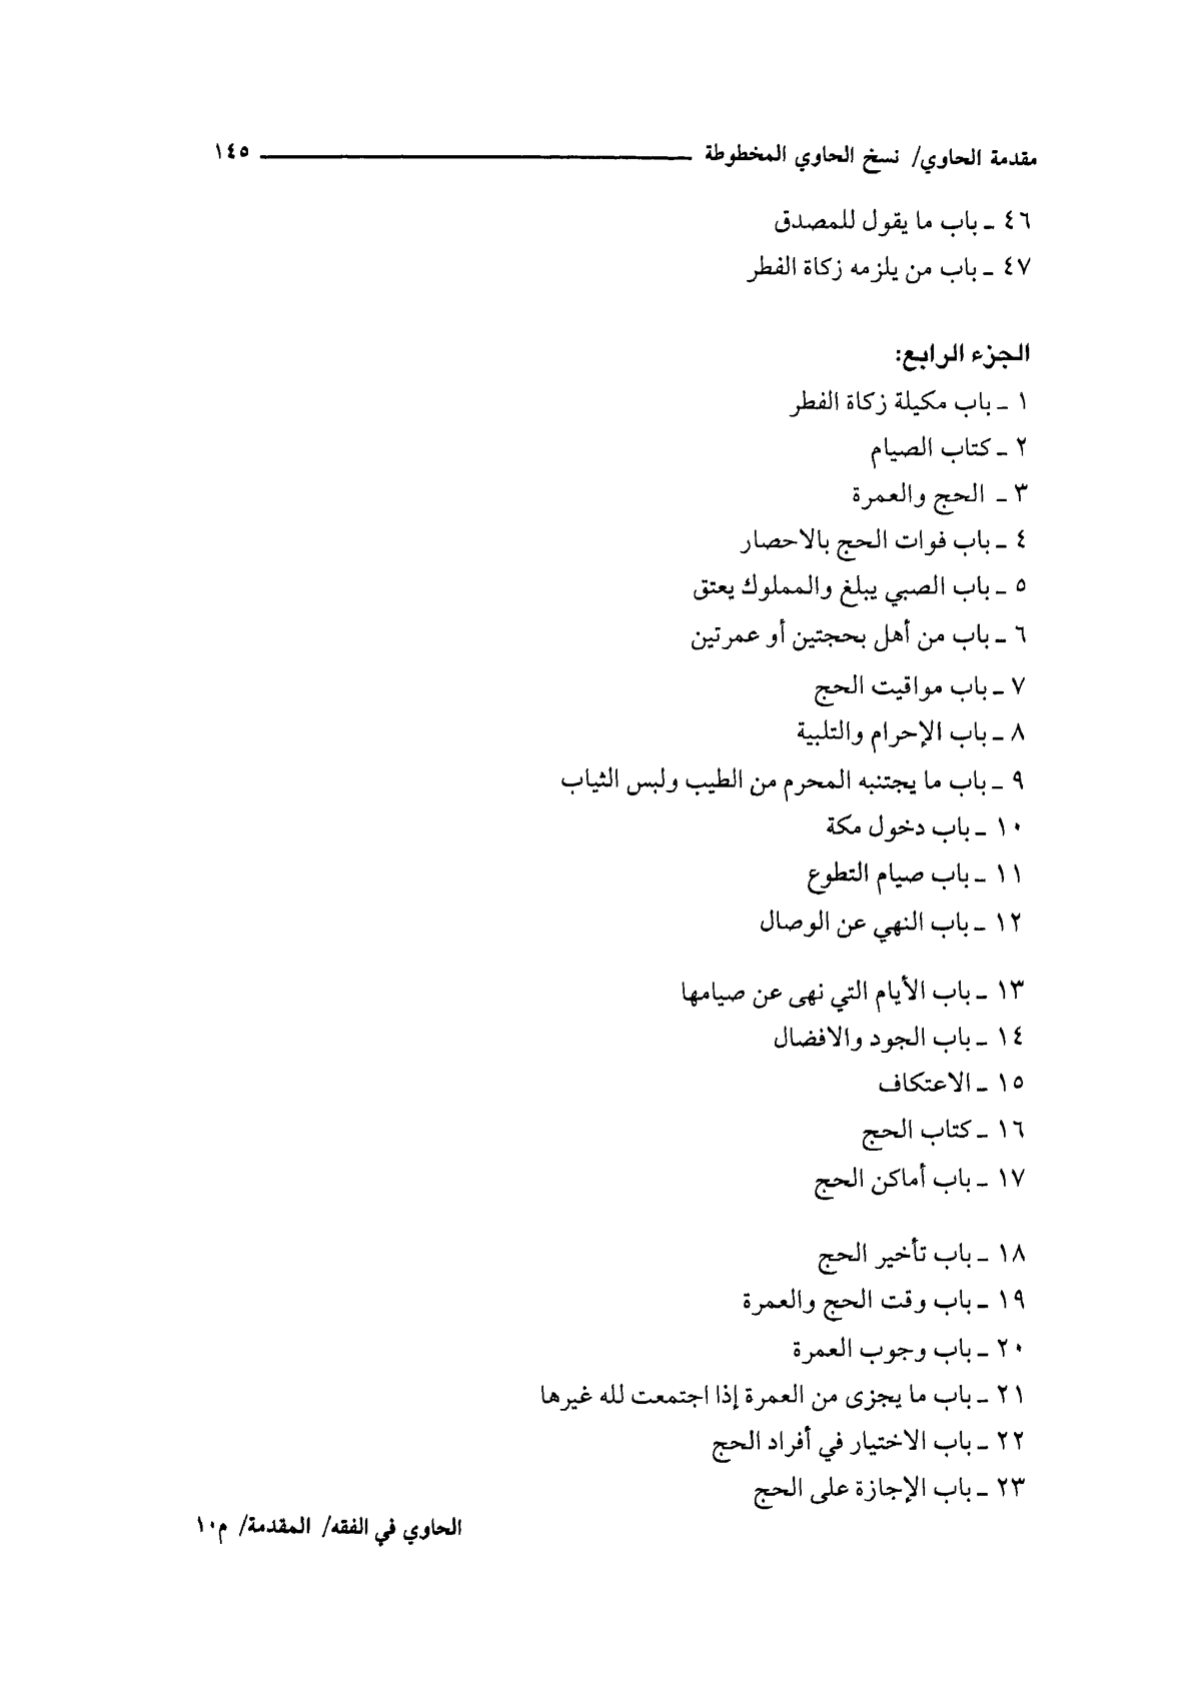 مقدمة الحاوي/ نسخ الحاوي المخطوطة ١٤٥
٤٦ ـ باب ما يقول للمصدق
٤٧ ـ باب من يلزمه زكاة الفطر
الجزء الرابع:
١ ـ باب مكيلة زكاة الفطر
٢ ـ كتاب الصيام
٣ ـ الحج والعمرة
٤ ـ باب فوات الحج بالاحصار
٥ ـ باب الصبي يبلغ والمملوك يعتق
٦ ـ باب من أهل بحجتين أو عمرتين
٧ ـ باب مواقيت الحج
٨ ـ باب الإحرام والتلبية
٩ ـ باب ما يجتنبه المحرم من الطيب ولبس الثياب
١٠ ـ باب دخول مكة
١١ ـ باب صيام التطوع
١٢ ـ باب النهي عن الوصال
١٣ ـ باب الأيام التي نهى عن صيامها
١٤ ـ باب الجود والافضال
١٥ ـ الاعتكاف
١٦ ـ كتاب الحج
١٧ ـ باب أماكن الحج
١٨ ـ باب تأخير الحج
١٩ ـ باب وقت الحج والعمرة
٢٠ ـ باب وجوب العمرة
٢١ ـ باب ما يجزى من العمرة إذا اجتمعت لله غيرها
٢٢ ـ باب الاختيار في أفراد الحج
٢٣ ـ باب الإجازة على الحج
الحاوي في الفقه/ المقدمة/ م١٠